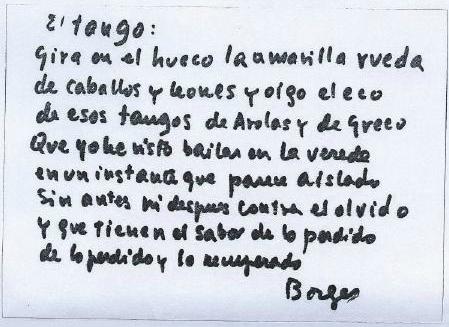 El tango:
Gira en el hueco la amarilla rueda
de caballos y leones y oigo el eco
de esos tangos de Arolas y de Greco
Que yo he visto bailar en la vereda
en un instante que parece aislado
Sin antes ni despues contra el olvido
y que tienen el sabor de lo perdido
de lo perdido y lo recuperado
Borges